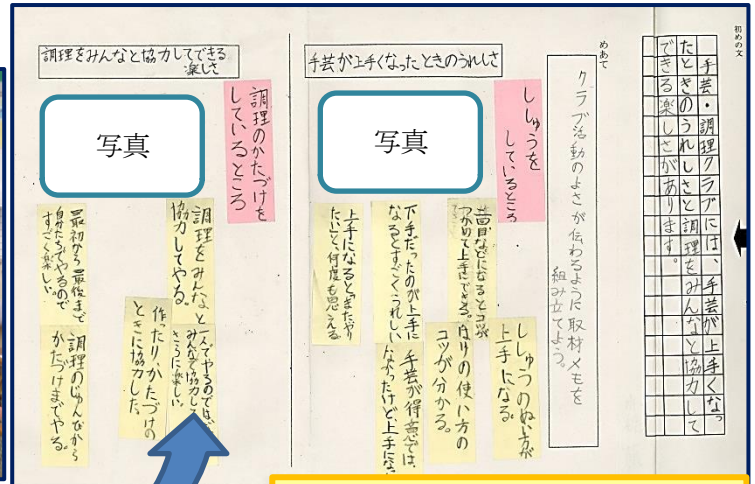 初めの文
手芸・調理クラブには、手芸が上手くなっ
たときのうれしさと調理をみんなと協力して
できる楽しさがあります。
めあて
クラブ活動のよさが伝わるように取材メモを
組み立てよう。
手芸が上手くなったときのうれしさ
写真
ししゅうを
しているところ
ししゅうのぬい方が
上手になる。
はりの使い方の
コツが分かる。
手芸が得意では
なかったけど上手にな
コツが
つかめて上手にできる。
下手だったのが上手に
なるとすごくうれしい
上手になるとまたやり
たいと、何度も思える
調理をみんなと協力してできる
楽しさ
写真
調理のかたづけを
しているところ
調理をみんなと
協力してやる。
一人でやるのでは
みんなで協力して
さらに楽しい。
作ったりかたづけの
ときに協力した。
最初から最後まで
自分たちでやるので
すごく楽しい。
調理のじゅんびから
かたづけまでやる。